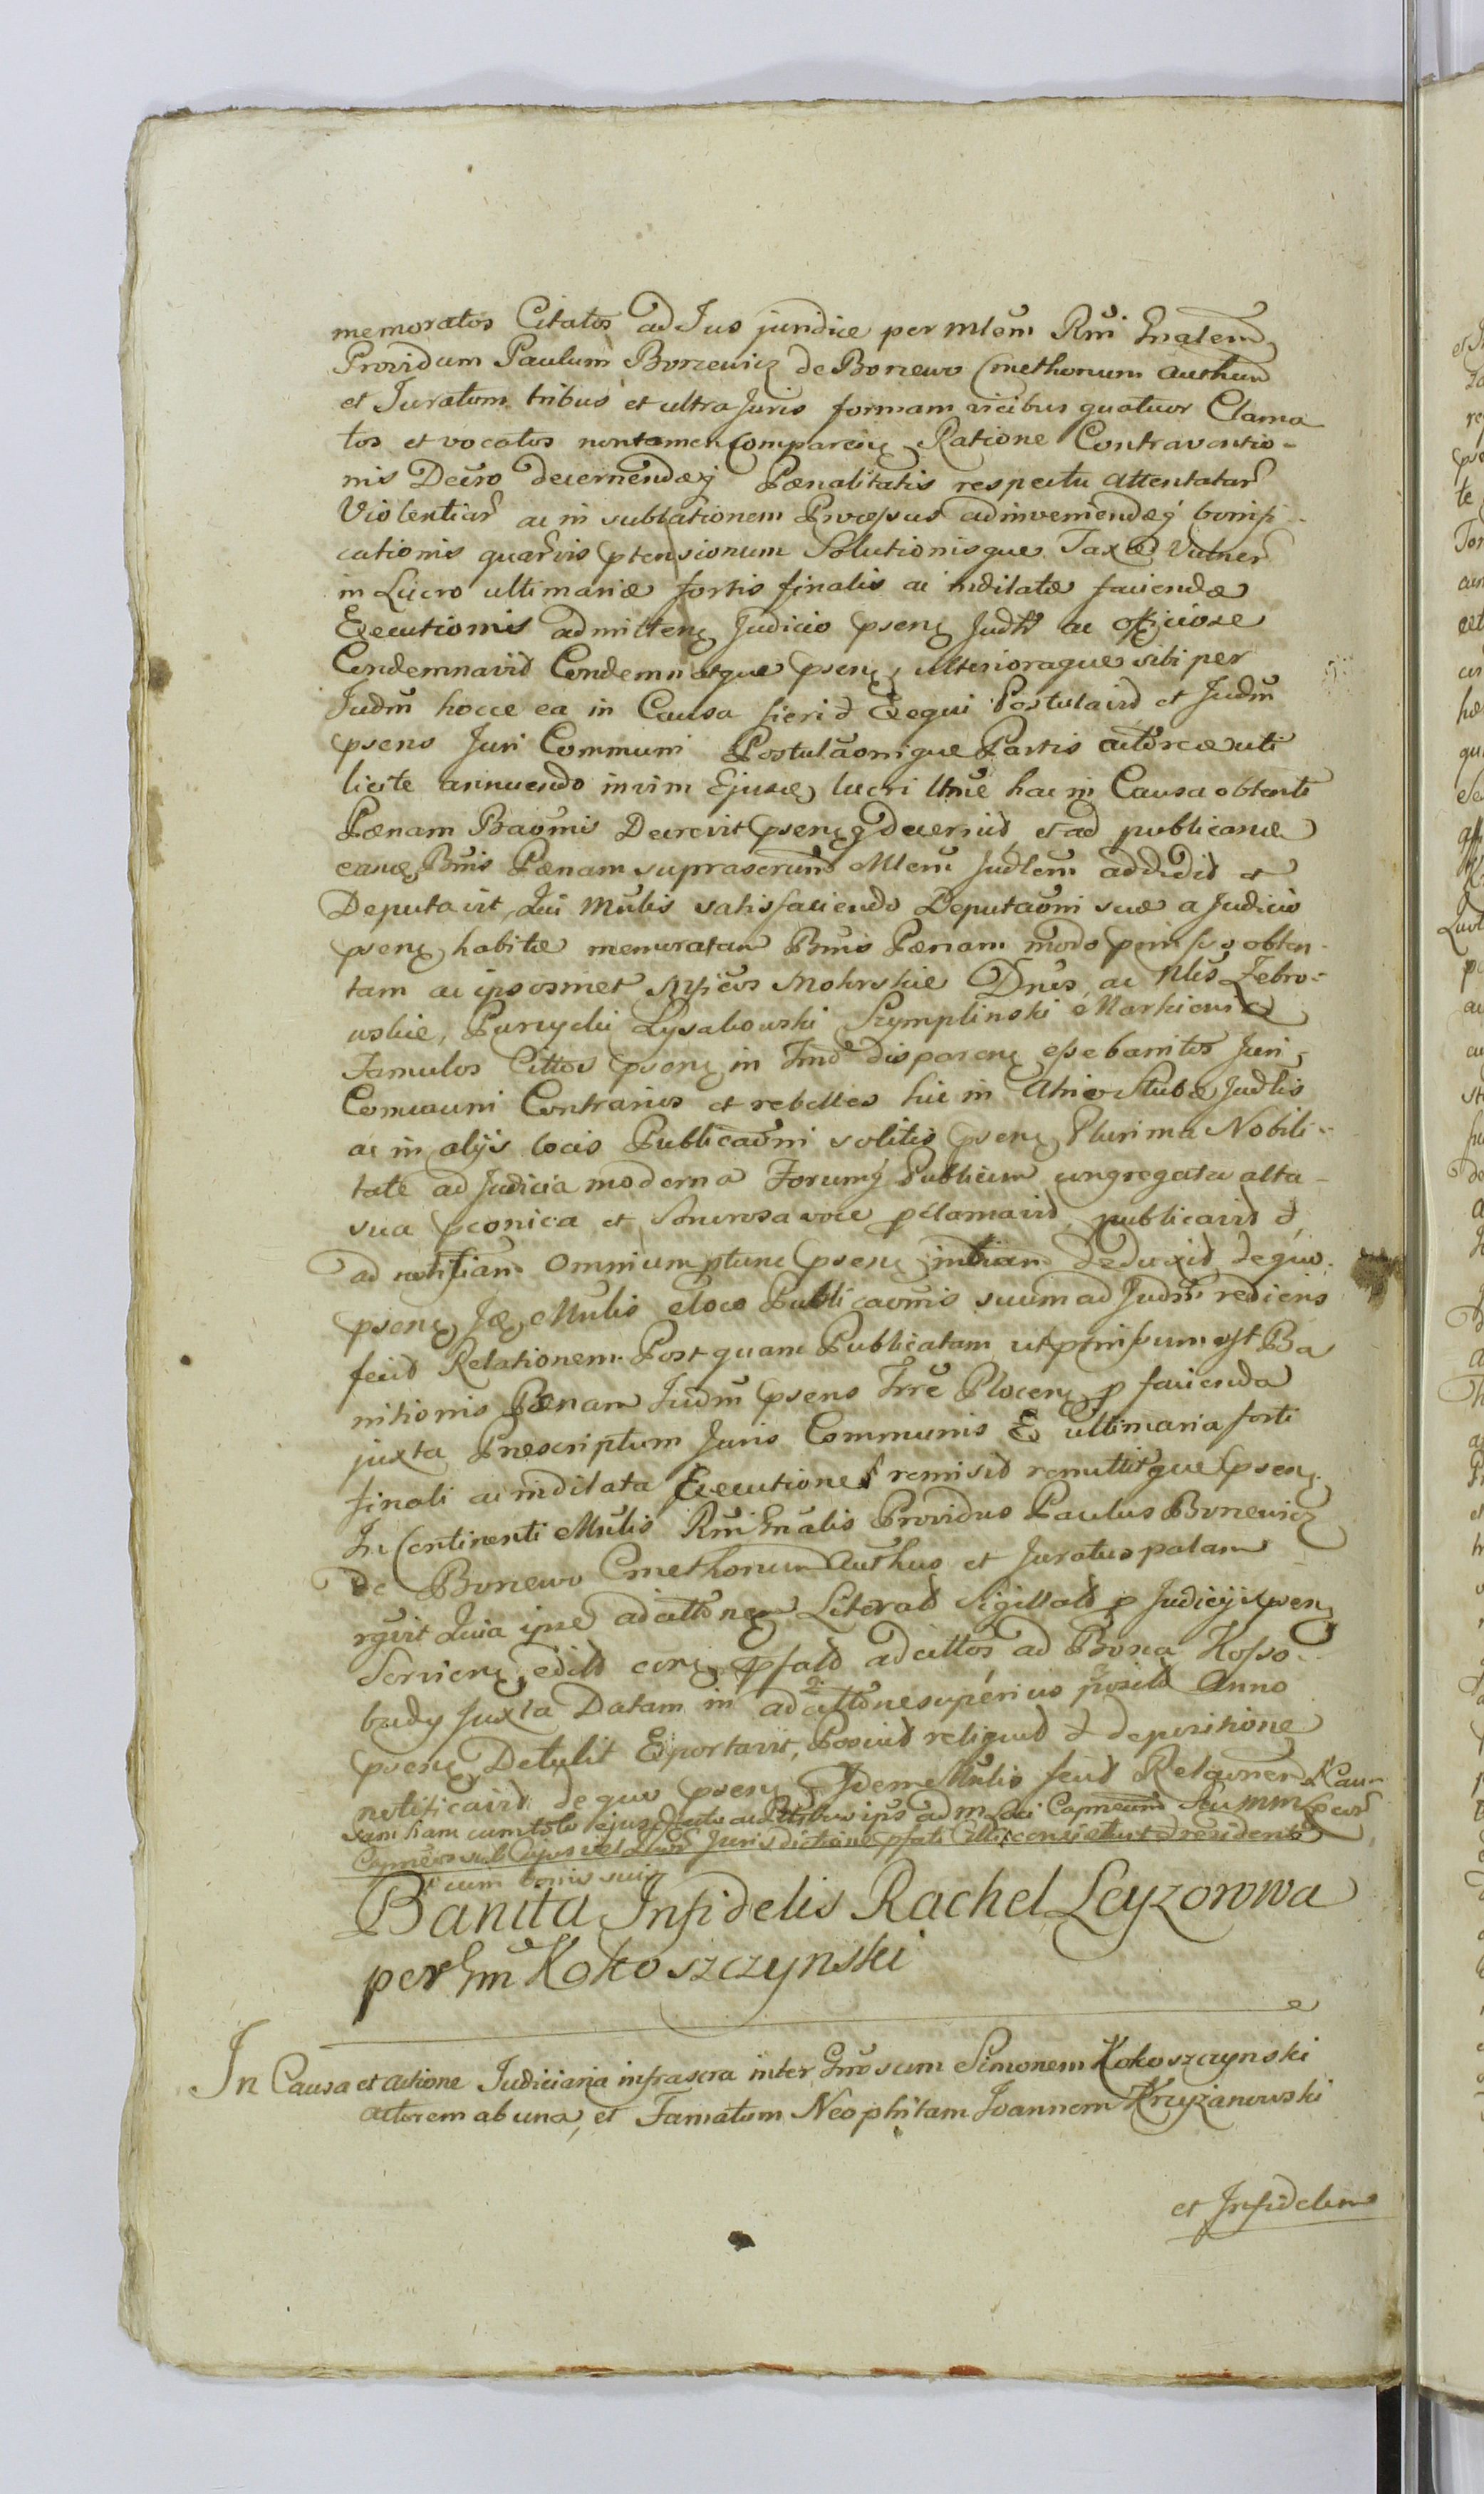 memoratos Citatos ad Jus juridice per Mlem Rni Gnalem
Providum Paulum Borzewicz de Borzewo Cmethonum Authum
et Juratum tribus et ultra Juris formam vicibus quatuor Clama
tos et vocatos non tamen Comparen Ratione Contraventio-
nis Decro decernendaeq Paenalitatis respectu attentatar
Violentiar ac in sublationem Processus adinveniendaeq bonifi-
cationis quarvis ptensionum Solutionisque Taxae Vulner
in Lucro ultimariae fortis finalis ac indilatae faciendae
Executionis admitten Judicio psen Judtr ac officiose
Condemnavit Condemnatque psen, ulterioraque sibi per
Judm hocce ea in Causa fieri et Exequi Postulavit et Judm
psens Juri Communi Postulaonique Partis actoreae uti
licite annuendo in vim Ejusce lucri Ume hac in Causa obtenti
Paenam Baonis Decrevit psenq decernit, et ad publicand
eance Bnis Paenam suprascrium Mlem Judlem addidit et
Deputavit, Qui Mnlis satisfaciendo Deputaoni suae a Judicio
psen habitae memoratam Bnis Paenam modo pmisso obten-
tam ac ipsosmet Mokrskie Dnos, ac Nlis Zebro-
wskie, Lysakowski Szymplinski Markiewicz
Famulos Cittos psen in Tmo disparen esse bannitos Juri
Communi Contrarios et rebelles hic in Atrio Stubae Judlis
ac in alijs locis Publicaoni solitis psen Plurima Nobili-
tate ad Judicia moderna Forumq Publicum congregata alta
sua pconica et Sonorosa voce pclamavit, publicavit et
ad notitiam Omnium ptunc psen indiam deduxit de quo
psen Mnlis e loco Publicaonis suum ad Judm rediens
fecit Relationem. Post quam Publicatam ut pmissum est Ba
nitionis Paenam Judm psens Trre Plocen p facienda
juxta Praescriptum Juris Communis Ex ultimaria forti
finali ac indilata Executione remisit remittitque psen
In Continenti Mnlis Rni Gnalis Providus Paulus Borzewicz
de Borzewo Cmethonum Authus et Juratus palam
rgvit Quia ipse adcittonem Literal Sigillat p Judicij psen
Servien, edit pfat adcittos ad Bona Kosso-
budy Juxta Datam in adcittone superius posita Anno
psen Detulit Exportavit, Posuit reliquit et depositione
notificavit de quo psen Idem Mnlis fecit Relaonem Cau-
sam hanc cum toto ejus
Juris dictione pfati
cum bonis suis
Banita Infidelis Rachel Leyzorowa
per Gm Kokoszczynski
In Causa et actione Judiciaria infrascra inter Gnrosum Simonem Kokoszczynski
actorem ab una, et Famatum Neophitam Joannem Krzyzanowski
et Infidelem